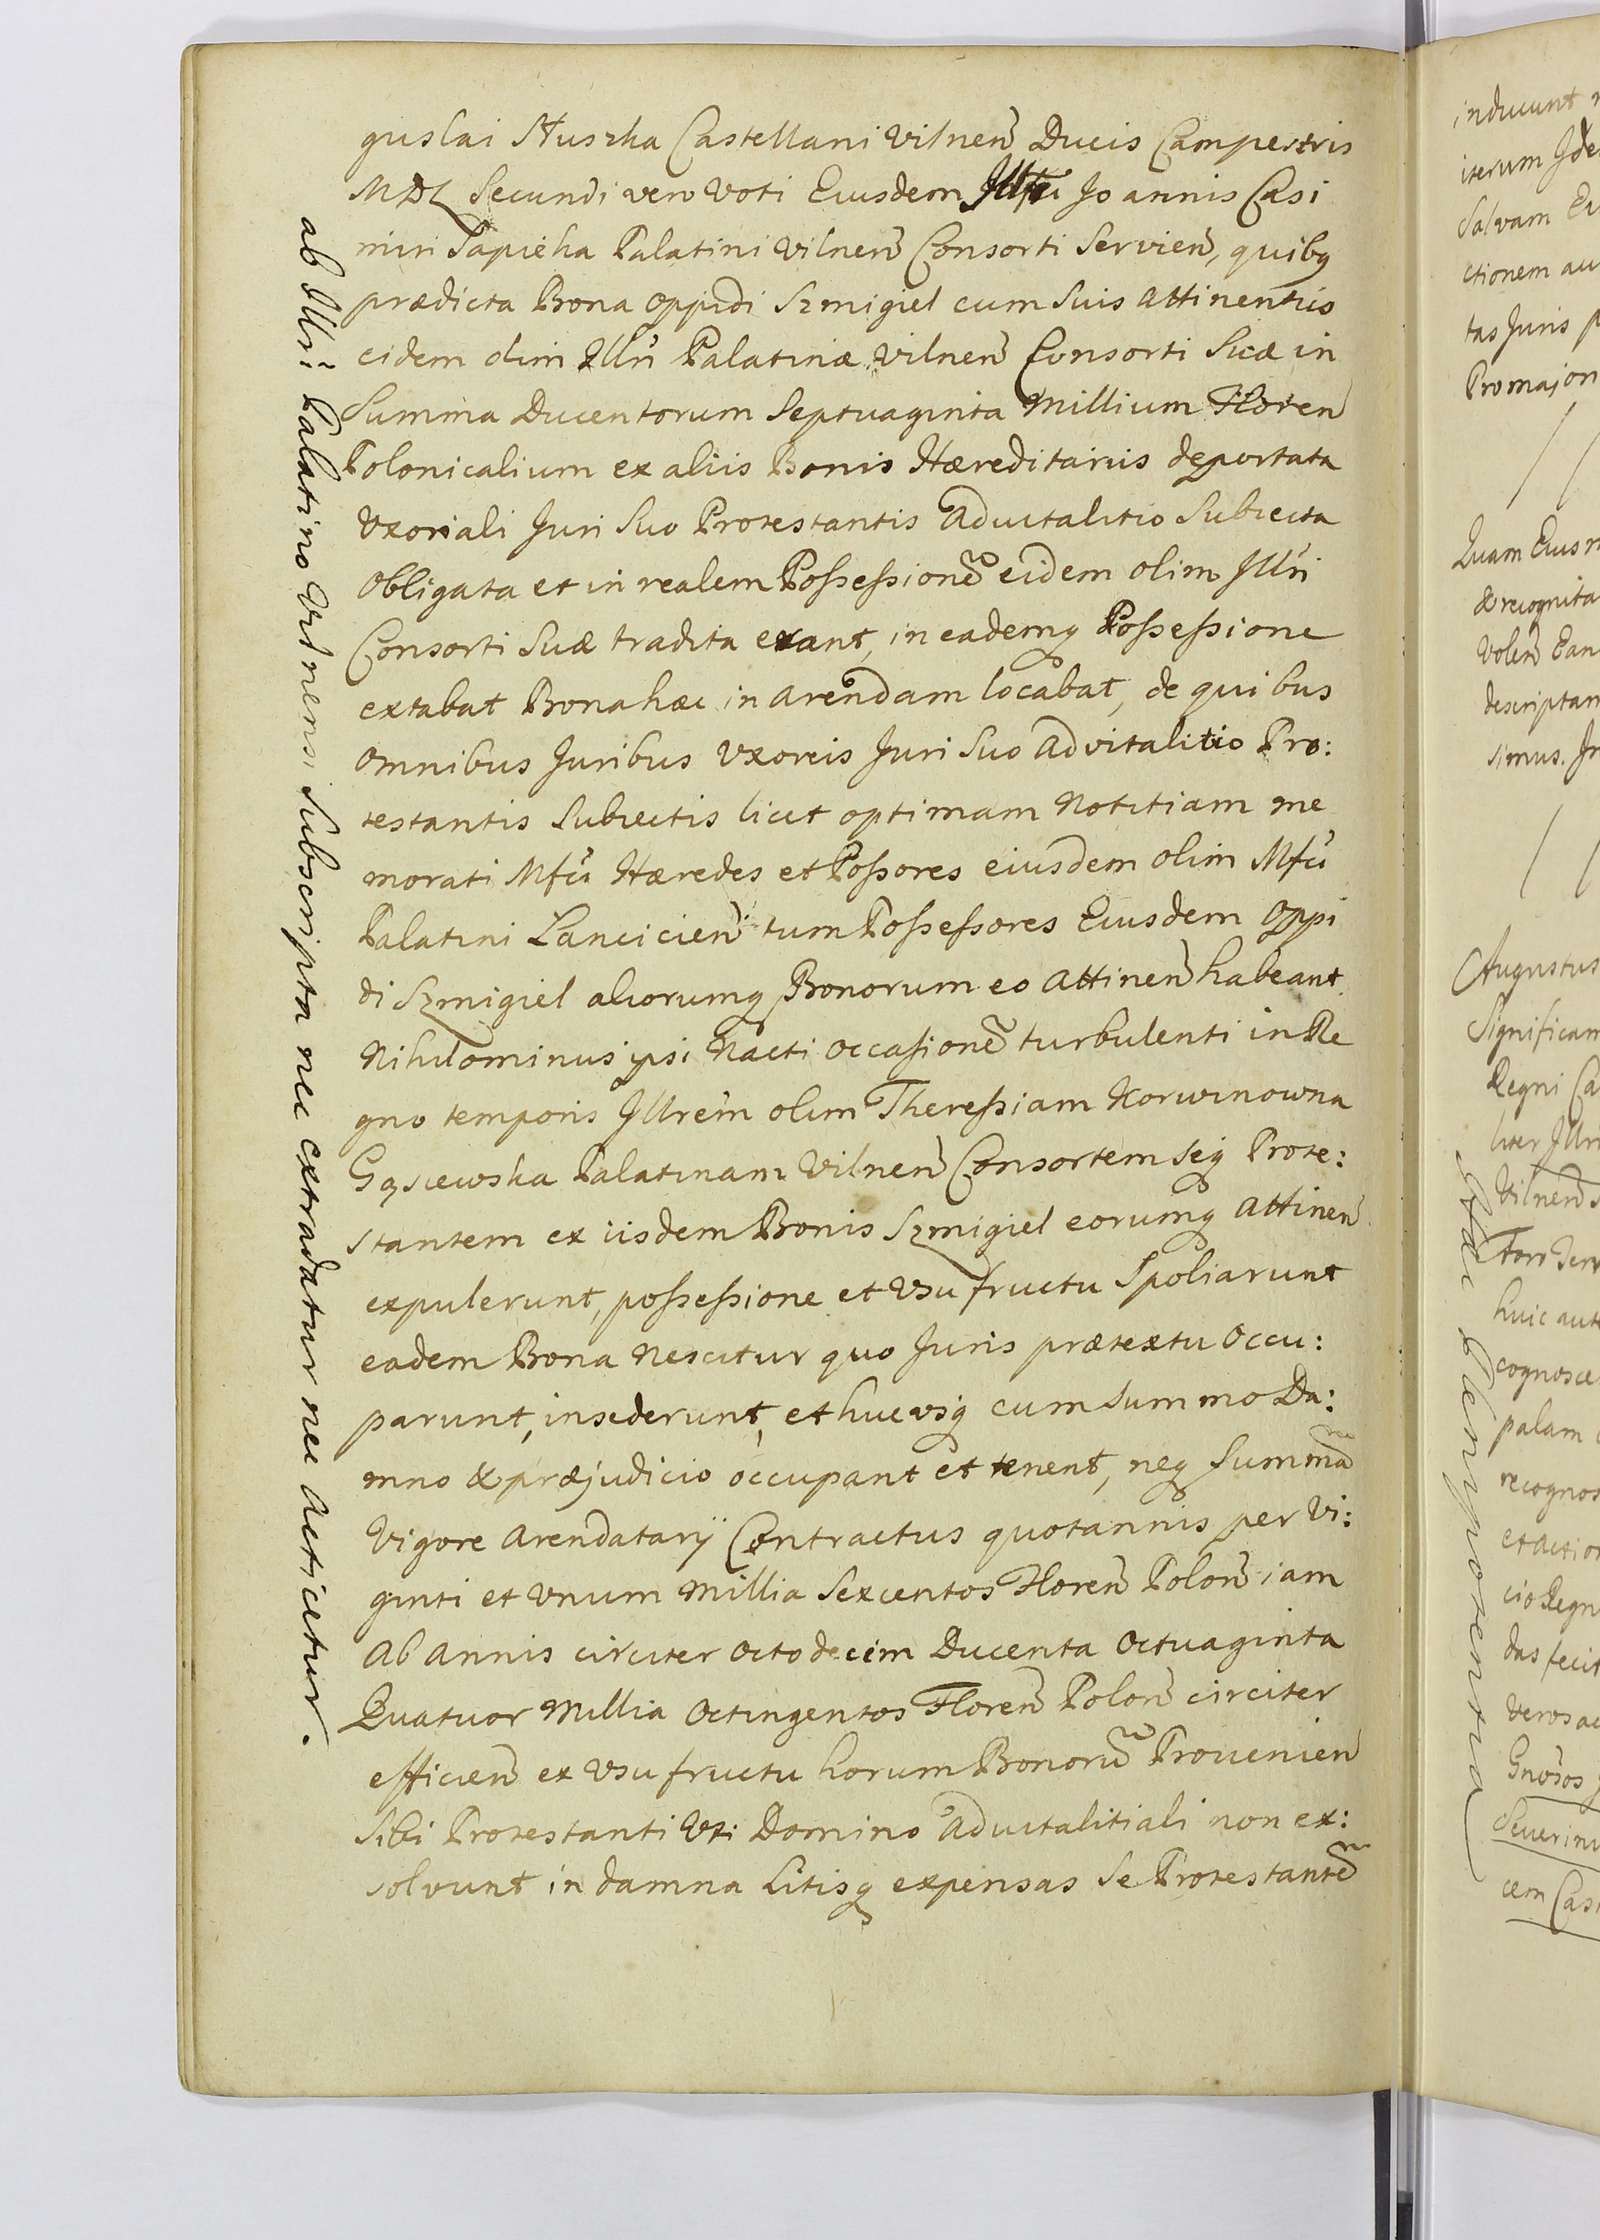 guslai Słuszka Castellani Vilnen Ducis Campestris
MDL Secundi vero Voti Eiusdem Joannis Casi
miri Sapieha Palatini Vilnen Consorti Servien, quibq
prædicta Bona Oppidi Szmigiel cum Suis Attinentiis
eidem olim Illri Palatinæ Vilnen Consorti Suæ in
Summa Ducentorum Septuaginta Millium Floren
Polonicalium ex aliis Bonis Hæreditariis deportata
Uxoriali Juri Suo Protestantis Advitalitio Subiecta
Obligata et in realem Possessionē eidem olim Illri
Consorti Suæ tradita erant, in eademq Possessione
extabat Bona hæc in Arendam locabat, de quibus
Omnibus Juribus Uxoreis Juri Suo Advitalitio Pro:
testantis Subiectis licet optimam Notitiam me
morati Mfci Hæredes et Possores eiusdem olim Mfci
Palatini Lancicien tum Possessores Eiusdem Oppi
di Szmigiel aliorumq Bonorum eo Attinen habeant
Nihilominus ipsi Nacti Occasionē turbulenti in Re
gno temporis Illrem olim Theressiam Korwinowna
Gąsiewska Palatinam Vilnen Consortem Seq Prote:
stantem ex iisdem Bonis Szmigiel eorumq Attinen
expulerunt, possessione et Usufructu Spoliarunt
eadem Bona Nescitur quo Juris prætextu Occu:
parunt, insederunt, et hucusq cum Summo Da:
mno & præjudicio occupant et tenent, neq Summā
Vigore Arendatarÿ Contractus quotannis per Vi:
ginti et Unum Millia Sexcentos Floren Polon iam
Ab Annis circiter Octodecim Ducenta Octuaginta
Quatuor Millia Octingentos Floren Polon circiter
efficien ex Usufructu horum Bonorū Provenien
Sibi Protestanti Uti Domino Advitalitiali non ex:
solvunt in damna Litisq expensas Se Protestantē
ab Illri Palatino Vilnensi Subscripta nec extradatur nec Acticetur.
inducunt
iterum
Salvam
ctionem
tas Juris
Pro majori
Quam
& recognita
Volen
descriptam
simus.
Augustus
Significam
Regni
liter
Vilnen
huic
palam
et Action
Severinu
cem
Plenipotentia